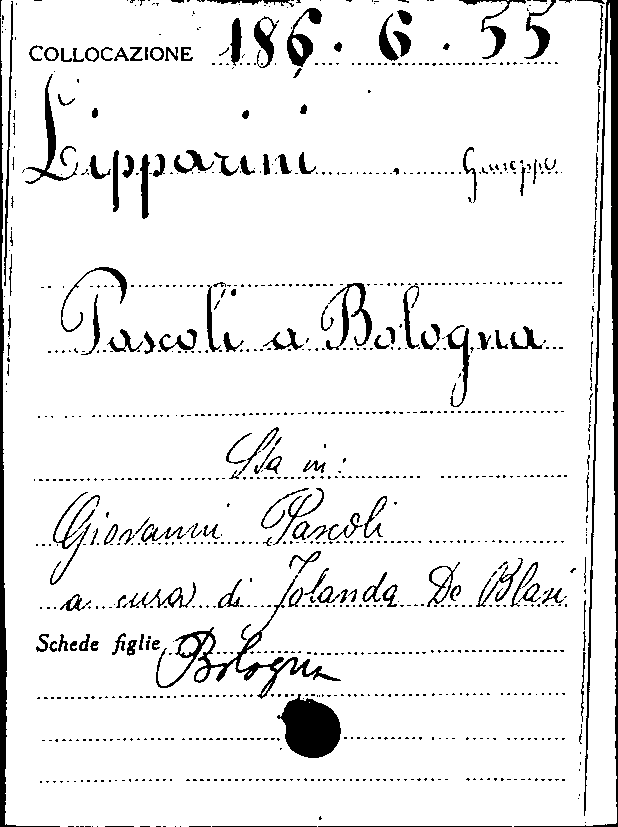 COLLOCAZIONE 186. 6. 55
Lipparini . Giuseppe
Pascoli a Bologna
Sta in:
Giovanni Pascoli
a cura di Jolanda De Blasi
Schede figlie Bologna